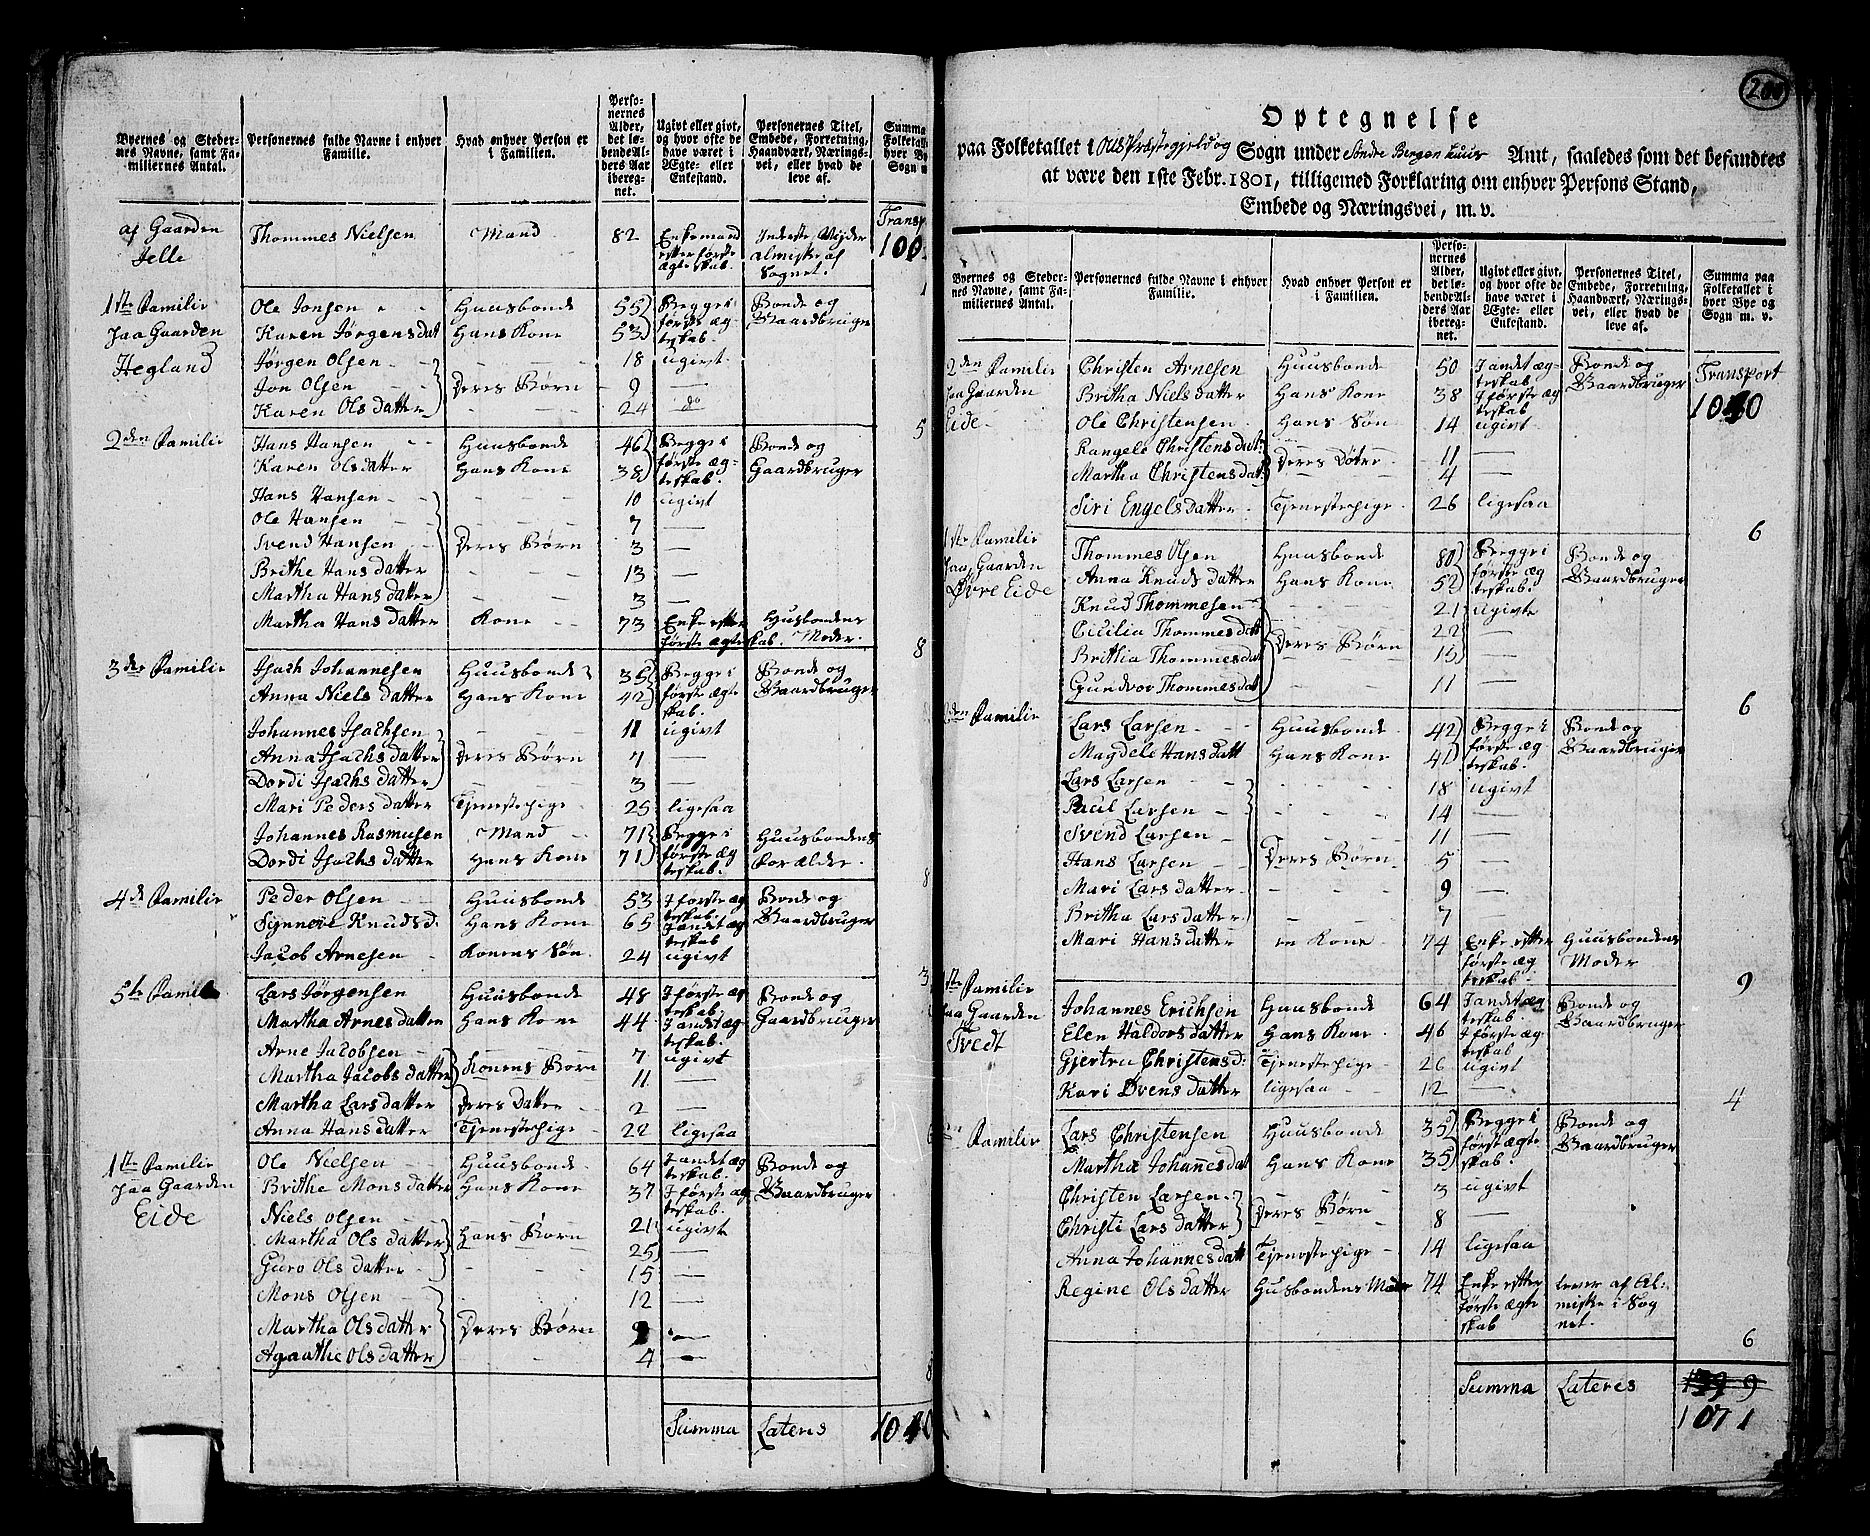 Byernes og Steder-
nes Navne, samt Fa-
miliernes Antal.
Personernes fulde Navne i enhver
Familie.
Hvad enhver Person er
i Familien.
Perso-
nernes
Alder,
det lø-
bende Al-
ders Aar
iberegnet.
Ugivt eller givt,
og hvor ofte de
have været i
Ægte- eller
Enkestand.
Personernes Titel,
Embede, Forretning,
Haandværk, Nærings-
vei, eller hvad de
leve af.
Summa
Folketalle
hver By
Sogn m
af Gaarden
Jelle
Thommes Nielsen Mand 82 Enkemand efter første ægteskab. Inderste Nyder almisse af Sognet. Transp
1
1ste Familie
paa Gaarden
Hegland
Ole Jonsen Huusbonde 55 Begge i første ægteskab. Bonde og Gaardbruger
Karen Jørgensdat Hans Kone 53
Jørgen Olsen 18 ugivt
Jon Olsen Deres Børn 9 —
Karen Olsdatter 24 do
5
2den Familie
Hans Hansen Huusbonde 46 Begge i første ægteskab. Bonde og Gaardbruger
Karen Olsdatter Hans Kone 38
Hans Hansen 10 ugivt
Ole Hansen 7 —
Svend Hansen Deres Børn 3 —
Brithe Hansdatter 13 —
Martha Hansdatter 3 —
Martha Hansdatter Kone 73 Enke efter første ægteskab. Husbondens Moder.
8
3die Familie
Isach Johannesen Huusbonde 35 Begge i første ægteskab. Bonde og Gaardbruger
Anna Nielsdatter Hans Kone 42
Johannes Isachsen 11 ugivt
Anna Isachsdatter Deres Børn 7 —
Dordi Isachsdatter 3 —
Mari Pedersdatter Tjenestepige 25 ligesaa
Johannes Rasmusen Mand 71 Begge i første ægteskab. Huusbondens Forældre.
Dordi Isachsdatter Hans Kone 71
8
4de Familie
Peder Olsen Huusbonde 53 I første ægteskab. Bonde og Gaardbruger
Synneve Knudsd. Hans Kone 65 I andet ægteskab
Jacob Arnesen Konens Søn 24 ugivt
3
5te Familie
Lars Jørgensen Huusbonde 48 I første ægteskab Bonde og Gaardbruger
Martha Arnesdatter Hans Kone 44 I andet ægteskab.
Arne Jacobsen Konens Børn 7 ugivt
Martha Jacobsdatter 11 —
Martha Larsdatter Deres Datter 2 —
Anna Hansdatter Tjenestepige 22 ligesaa
6
1ste Familie
paa Gaarden
Eide
Ole Nielsen Huusbonde 64 I andet ægteskab. Bonde og Gaardbruger
Brithe Monsdatter Hans Kone 37 I første ægteskab.
Niels Olsen 21 ugivt
Martha Olsdatter Hans Børn 25 —
Guro Olsdatter 15 —
Mons Olsen 12 —
Martha Olsdatter Deres Børn 9 —
Agaathe Olsdatter 4 —
8
Summa Lateris
Optegnelse
paa Folketallet i Ous Præstegjeld og Sogn under Søndre Bergenhuus Amt, saaledes som det befandtes
at være den 1ste Febr. 1801, tilligemed Forklaring om enhver Persons Stand,
Embede og Næringsvei, m. v.
Byernes og Steder-
nes Navne, samt Fa-
miliernes Antal.
Personernes fulde Navne i enhver
Familie.
Hvad enhver Person er
i Familien.
Perso-
nernes
Alder,
det lø-
bende Al-
ders Aar
ibereg-
net.
Ugivt eller givt,
og hvor ofte de
have været i
Ægte- eller
Enkestand.
Personernes Titel,
Embede, Forretning,
Haandværk, Nærings-
vei, eller hvad de
leve af.
Summa paa
Folketallet i
hver Bye og
Sogn m. v.
2den Familie
paa Gaarden
Eide
Christen Arnesen Huusbonde 50 I andet ægteskab Bonde og Gaardbruger Transport
Britha Nielsdatter Hans Kone 38 I første ægteskab 1040
Ole Christensen Hans Søn 14 ugivt
Rangele Christensdat Deres Døtre 11 —
Martha Christensdat 4 —
Siri Engelsdatter Tjenestepige 26 ligesaa
6
1ste Familie
paa Gaarden
Øvre Eide
Thommes Olsen Huusbonde 80 Begge i første ægteskab. Bonde og Gaardbruger
Anna Knudsdatter Hans Kone 52
Knud Thommesen 21 ugivt
Cicilia Thommesdat Deres Børn 22 —
Brithia Thommesdat 15 —
Gundvor Thommesdat 11 —
6
2den Familie
Lars Larsen Huusbonde 42 Begge i første ægteskab. Bonde og Gaardbruger
Magdele Hansdatt Hans Kone 41
Lars Larsen 18 ugivt
Paul Larsen 14 —
Svend Larsen 11 —
Hans Larsen Deres Børn 5 —
Mari Larsdatter 9 —
Britha Larsdatter 7 —
Mari Hansdatter en Kone 74 Enke efter første ægteskab. Huusbondens Moder
9
1ste Familie
paa Gaarden
Tvedt
Johannes Erichsen Huusbonde 64 I andet ægteskab. Bonde og Gaardbruger
Elen Haldorsdatter Hans Kone 46 I første ægteskab
Gjertru Christensd: Tjenestepige 26 ugivt
Kari Øvensdatter ligesaa 12 —
4
2den Familie
Lars Christensen Huusbonde 35 Begge i første ægteskab. Bonde og Gaardbruger
Martha Johannesdat Hans Kone 35
Christen Larsen Deres Børn 3 ugivt
Christi Larsdatter 8 —
Anna Johannesdatt Tjenestepige 14 ligesaa
Regine Olsdatter Husbondens Moder 74 Enke efter første ægteskab lever af Almisse i Sognet.
6
Summa Lateris
1071